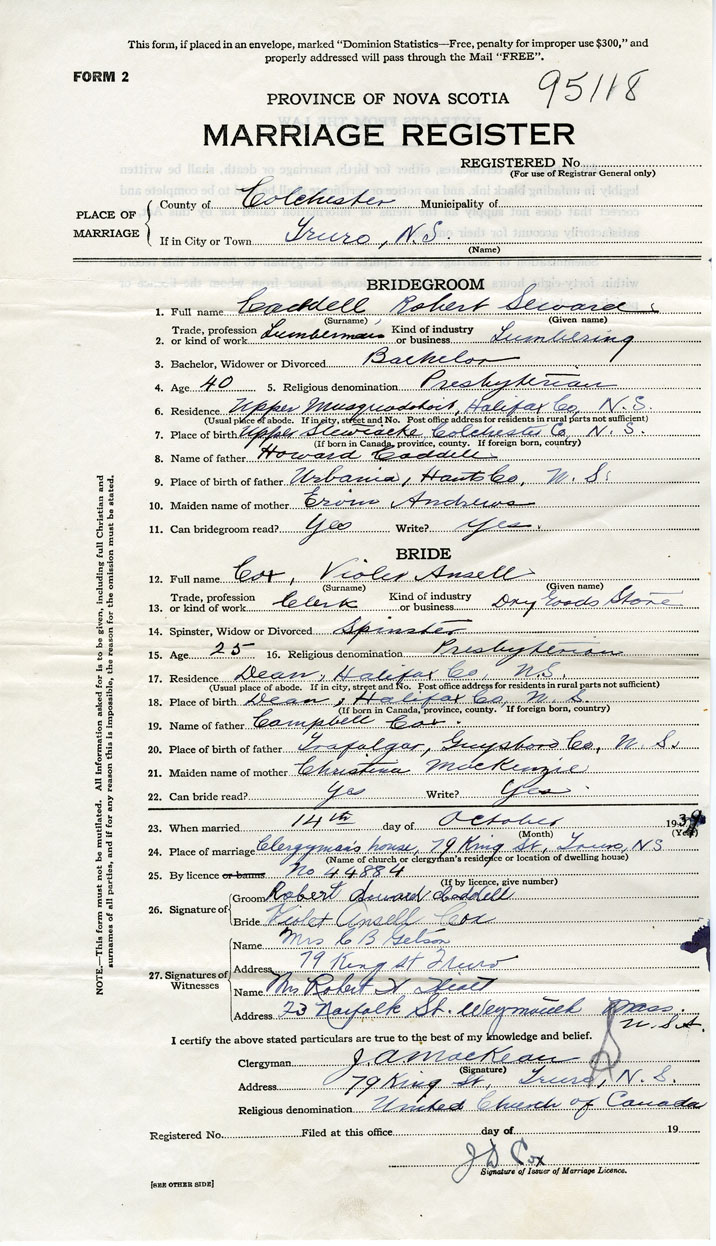 This form, if placed in an envelope, marked "Dominion Statistics—Free, penalty for improper use $300," and
properly addressed will pass through the Mail "FREE".
FORM 2
95118
PROVINCE OF NOVA SCOTIA
MARRIAGE REGISTER
REGISTERED No.
(For use of Registrar General only)
PLACE OF MARRIAGE
County of Colchester Municipality of
If in City or Town Truro, N.S.
(Name)
BRIDEGROOM
1. Full name Caddell Robert Seward
(Surname) (Given name)
2. Trade, profession or kind of work Lumberman Kind of industry or business Lumbering
3. Bachelor, Widower or Divorced Bachelor
4. Age 40 5. Religious denomination Presbyterian
6. Residence Upper Musquodoboit, Halifax Co, N.S.
(Usual place of abode. If in city, street and No. Post office address for residents in rural parts not sufficient)
7. Place of birth Upper Stewiacke Colchester Co, N.S.
(If born in Canada, province, county. If foreign born, country)
8. Name of father Howard Caddell
9. Place of birth of father Urbania, Hants Co, N.S.
10. Maiden name of mother Andrews
11. Can bridegroom read? Yes Write? Yes.
BRIDE
12. Full name Cox, Violet Ansell
(Surname) (Given name)
13. Trade, profession or kind of work Clerk Kind of industry or business Dry Goods Store
14. Spinster, Widow or Divorced Spinster
15. Age 25 16. Religious denomination Presbyterian
17. Residence Dean, Halifax Co, N.S.
(Usual place of abode. If in city, street and No. Post office address for residents in rural parts not sufficient)
18. Place of birth Dean, Halifax Co, N.S.
(If born in Canada, province, county. If foreign born, country)
19. Name of father Campbell Cox.
20. Place of birth of father Trafalgar, Guysboro Co, N.S.
21. Maiden name of mother Christina MacKenzie
22. Can bride read? Yes Write? Yes.
23. When married 14th day of October 1939
(Month) (Year)
24. Place of marriage Clergyman's house, 79 King St, Truro, N.S
(Name of church or clergyman's residence or location of dwelling house)
25. By licence or banns No 44884
(If by licence, give number)
26. Signature of
Groom Robert Seward Caddell
Bride Violet Ansell Cox
27. Signatures of Witnesses
Name Mrs C B
Address 79 King St Truro
Name Mrs Robert
Address 23 Norfolk St. Weymouth Mass.
U.S.A.
I certify the above stated particulars are true to the best of my knowledge and belief.
Clergyman J. A MacKean
(Signature)
Address 79 King St, Truro, N.S.
Religious denomination United Church of Canada
Registered No. Filed at this office day of 19
J D Cox
Signature of Issuer of Marriage Licence.
[SEE OTHER SIDE]
NOTE.—This form must not be mutilated. All Information asked for is to be given, including full Christian and
surnames of all parties, and if for any reason this is impossible, the reason for the omission must be stated.